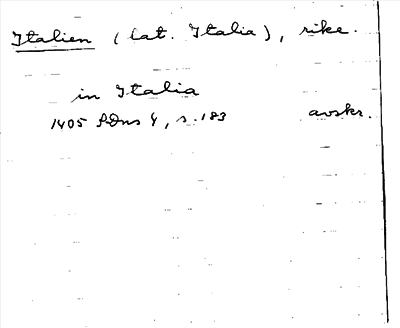 Italien (lat. Italia), rike.
in Italia
1405 SDns 4, s. 183 avskr.